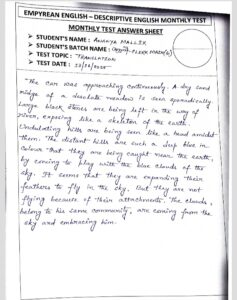 EMPYREAN ENGLISH – DESCRIPTIVE ENGLISH MONTHLY TEST
MONTHLY TEST ANSWER SHEET
➤ STUDENT'S NAME : ANANYA MALLIK
➤ STUDENT'S BATCH NAME : CLERK MAIN
➤ TEST TOPIC : TRANSLATION
➤ TEST DATE :
The car was approaching continuously. A dry sand
ridge of a desolate meadow is seen sporadically
Large black stones are being left in the way of
river, exposing like a skeleton of the earth.
Undulating hills are being seen like a head amidst
them. The distant hills are such a deep blue in
colour that they are being caught near the earth,
by coming to play with the blue clouds of the
sky. It seems that they are expanding their
feathers to fly in the sky. But they are not
flying because of their attachments. The clouds,
belong to his same community, are coming from the
sky and embracing him.